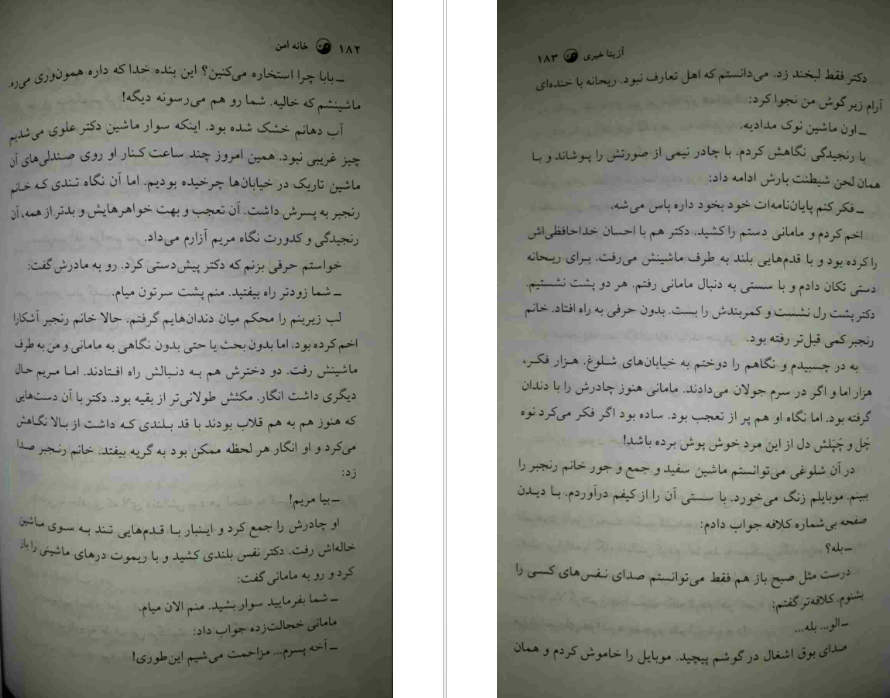 ۱۸۲ خانه امن
ــ بابا چرا استخاره می‌کنین؟ این بنده خدا که داره همون‌وری می‌ره.
ماشینشم که خالیه. شما رو هم می‌رسونه دیگه!
آب دهانم خشک شده بود. اینکه سوار ماشین دکتر علوی می‌شدیم
چیز غریبی نبود. همین امروز چند ساعت کنار او روی صندلی‌های آن
ماشین تاریک در خیابان‌ها چرخیده بودیم. اما آن نگاه تندی که خانم
رنجبر به پسرش داشت. آن تعجب و بهت خواهرهایش و بدتر از همه، آن
رنجیدگی و کدورت نگاه مریم آزارم می‌داد.
خواستم حرفی بزنم که دکتر پیش‌دستی کرد. رو به مادرش گفت:
ــ شما زودتر راه بیفتید. منم پشت سرتون میام.
لب زیرینم را محکم میان دندان‌هایم گرفتم. حالا خانم رنجبر آشکارا
اخم کرده بود. اما بدون بحث یا حتی بدون نگاهی به مامانی و من به طرف
ماشینش رفت. دو دخترش هم به دنبالش راه افتادند. اما مریم حال
دیگری داشت انگار. مکثش طولانی‌تر از بقیه بود. دکتر با آن دست‌هایی
که هنوز هم به هم قلاب بودند با قد بلندی که داشت از بالا نگاهش
می‌کرد و او انگار هر لحظه ممکن بود به گریه بیفتد. خانم رنجبر صدا
زد:
ــ بیا مریم!
او چادرش را جمع کرد و اینبار با قدم‌هایی تند به سوی ماشین
خاله‌اش رفت. دکتر نفس بلندی کشید و با ریموت درهای ماشینی را باز
کرد و رو به مامانی گفت:
ــ شما بفرمایید سوار بشید. منم الان میام.
مامانی خجالت‌زده جواب داد:
ــ آخه پسرم... مزاحمت می‌شیم این‌طوری!
آزیتا خیری ۱۸۳
دکتر فقط لبخند زد. می‌دانستم که اهل تعارف نبود. ریحانه با خنده‌ای
آرام زیر گوش من نجوا کرد:
ــ اون ماشین نوک مدادیه.
با رنجیدگی نگاهش کردم. با چادر نیمی از صورتش را پوشاند و با
همان لحن شیطنت بارش ادامه داد:
ــ فکر کنم پایان‌نامه‌ات خود بخود داره پاس می‌شه.
اخم کردم و مامانی دستم را کشید. دکتر هم با احسان خداحافظی‌اش
را کرده بود و با قدم‌هایی بلند به طرف ماشینش می‌رفت. برای ریحانه
دستی تکان دادم و با سستی به دنبال مامانی رفتم. هر دو پشت نشستیم.
دکتر پشت رل نشست و کمربندش را بست. بدون حرفی به راه افتاد. خانم
رنجبر کمی قبل‌تر رفته بود.
به در چسبیدم و نگاهم را دوختم به خیابان‌های شلوغ. هزار فکر،
هزار اما و اگر در سرم جولان می‌دادند. مامانی هنوز چادرش را با دندان
گرفته بود. اما نگاه او هم پر از تعجب بود. ساده بود اگر فکر می‌کرد نوه
چَل و چَپَلش دل از این مرد خوش پوش برده باشد!
در آن شلوغی می‌توانستم ماشین سفید و جمع و جور خانم رنجبر را
ببینم. موبایلم زنگ می‌خورد. با سستی آن را از کیفم درآوردم. با دیدن
صفحه بی‌شماره کلافه جواب دادم:
ــ بله؟
درست مثل صبح باز هم فقط می‌توانستم صدای نفس‌های کسی را
بشنوم. کلافه‌تر گفتم:
ــ الو... بله...
صدای بوق اشغال در گوشم پیچید. موبایل را خاموش کردم و همان